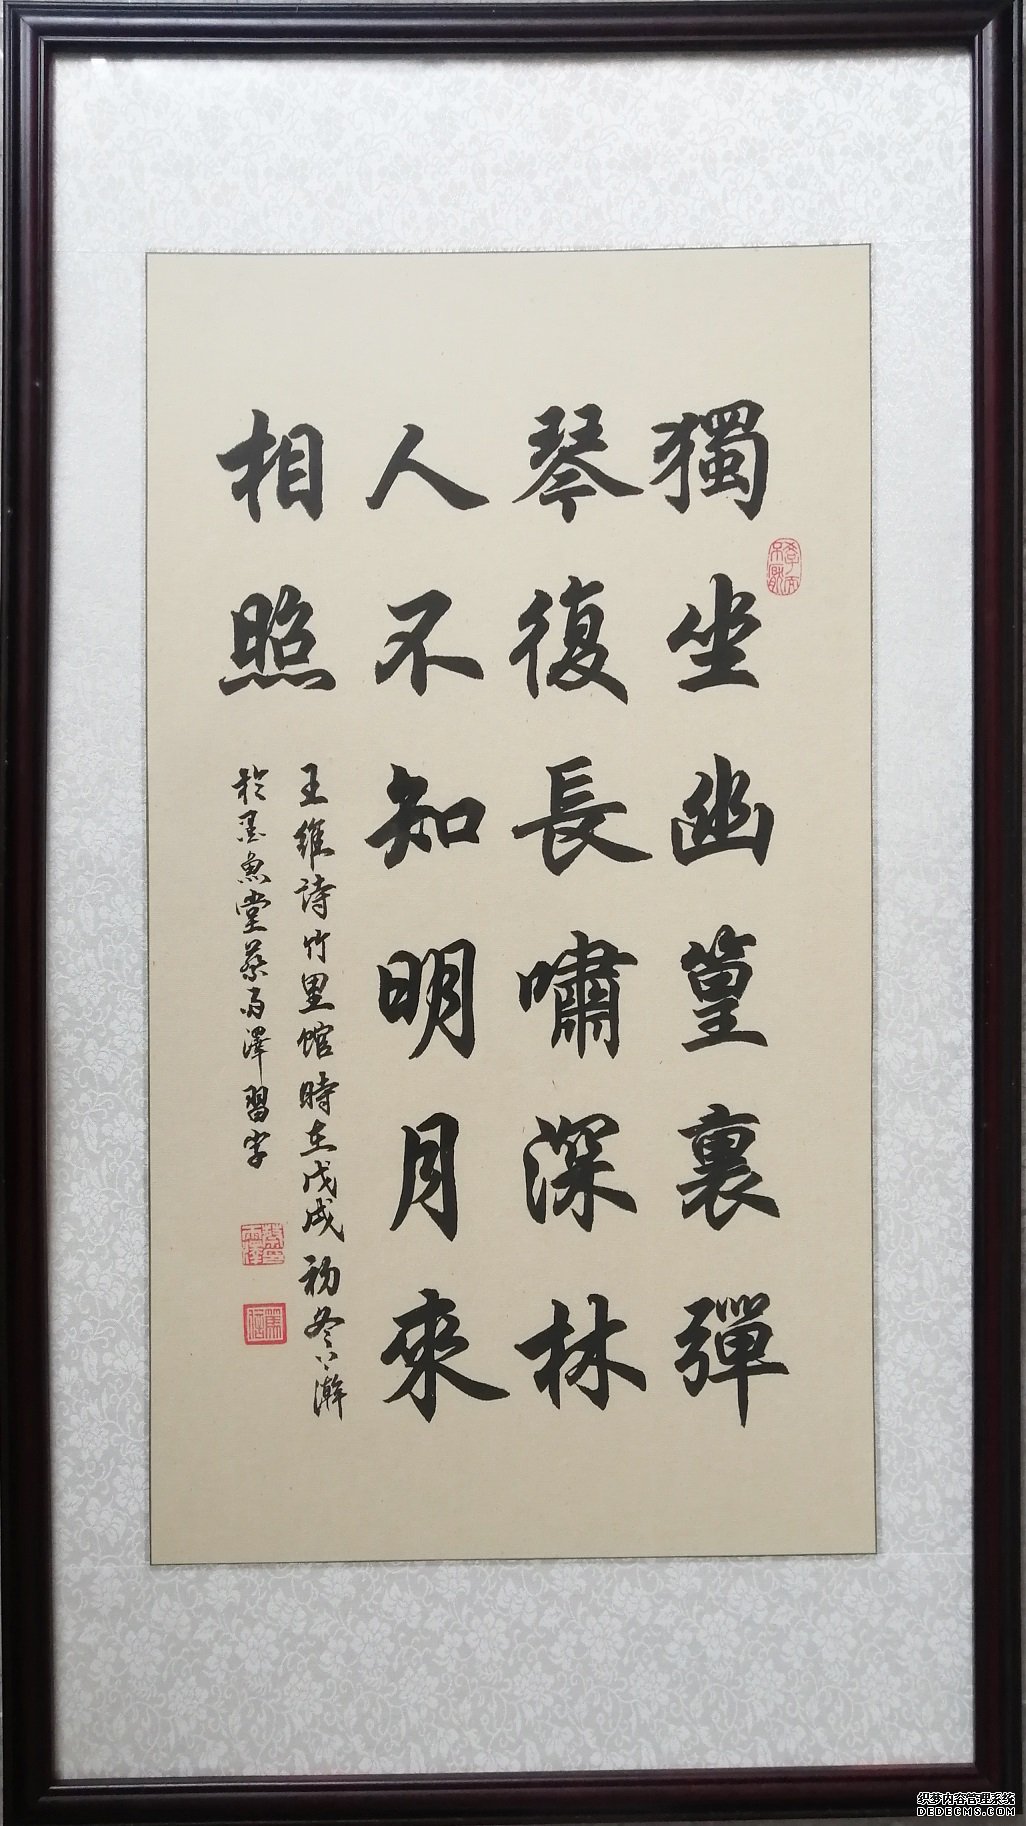 獨坐幽篁裏彈
琴復長嘯深林
人不知明月來
相照
王維詩竹里館時在戊戌初冬下澣
於墨魚堂蔡雨澤習字
织梦内容管理系统
DEDECMS.COM